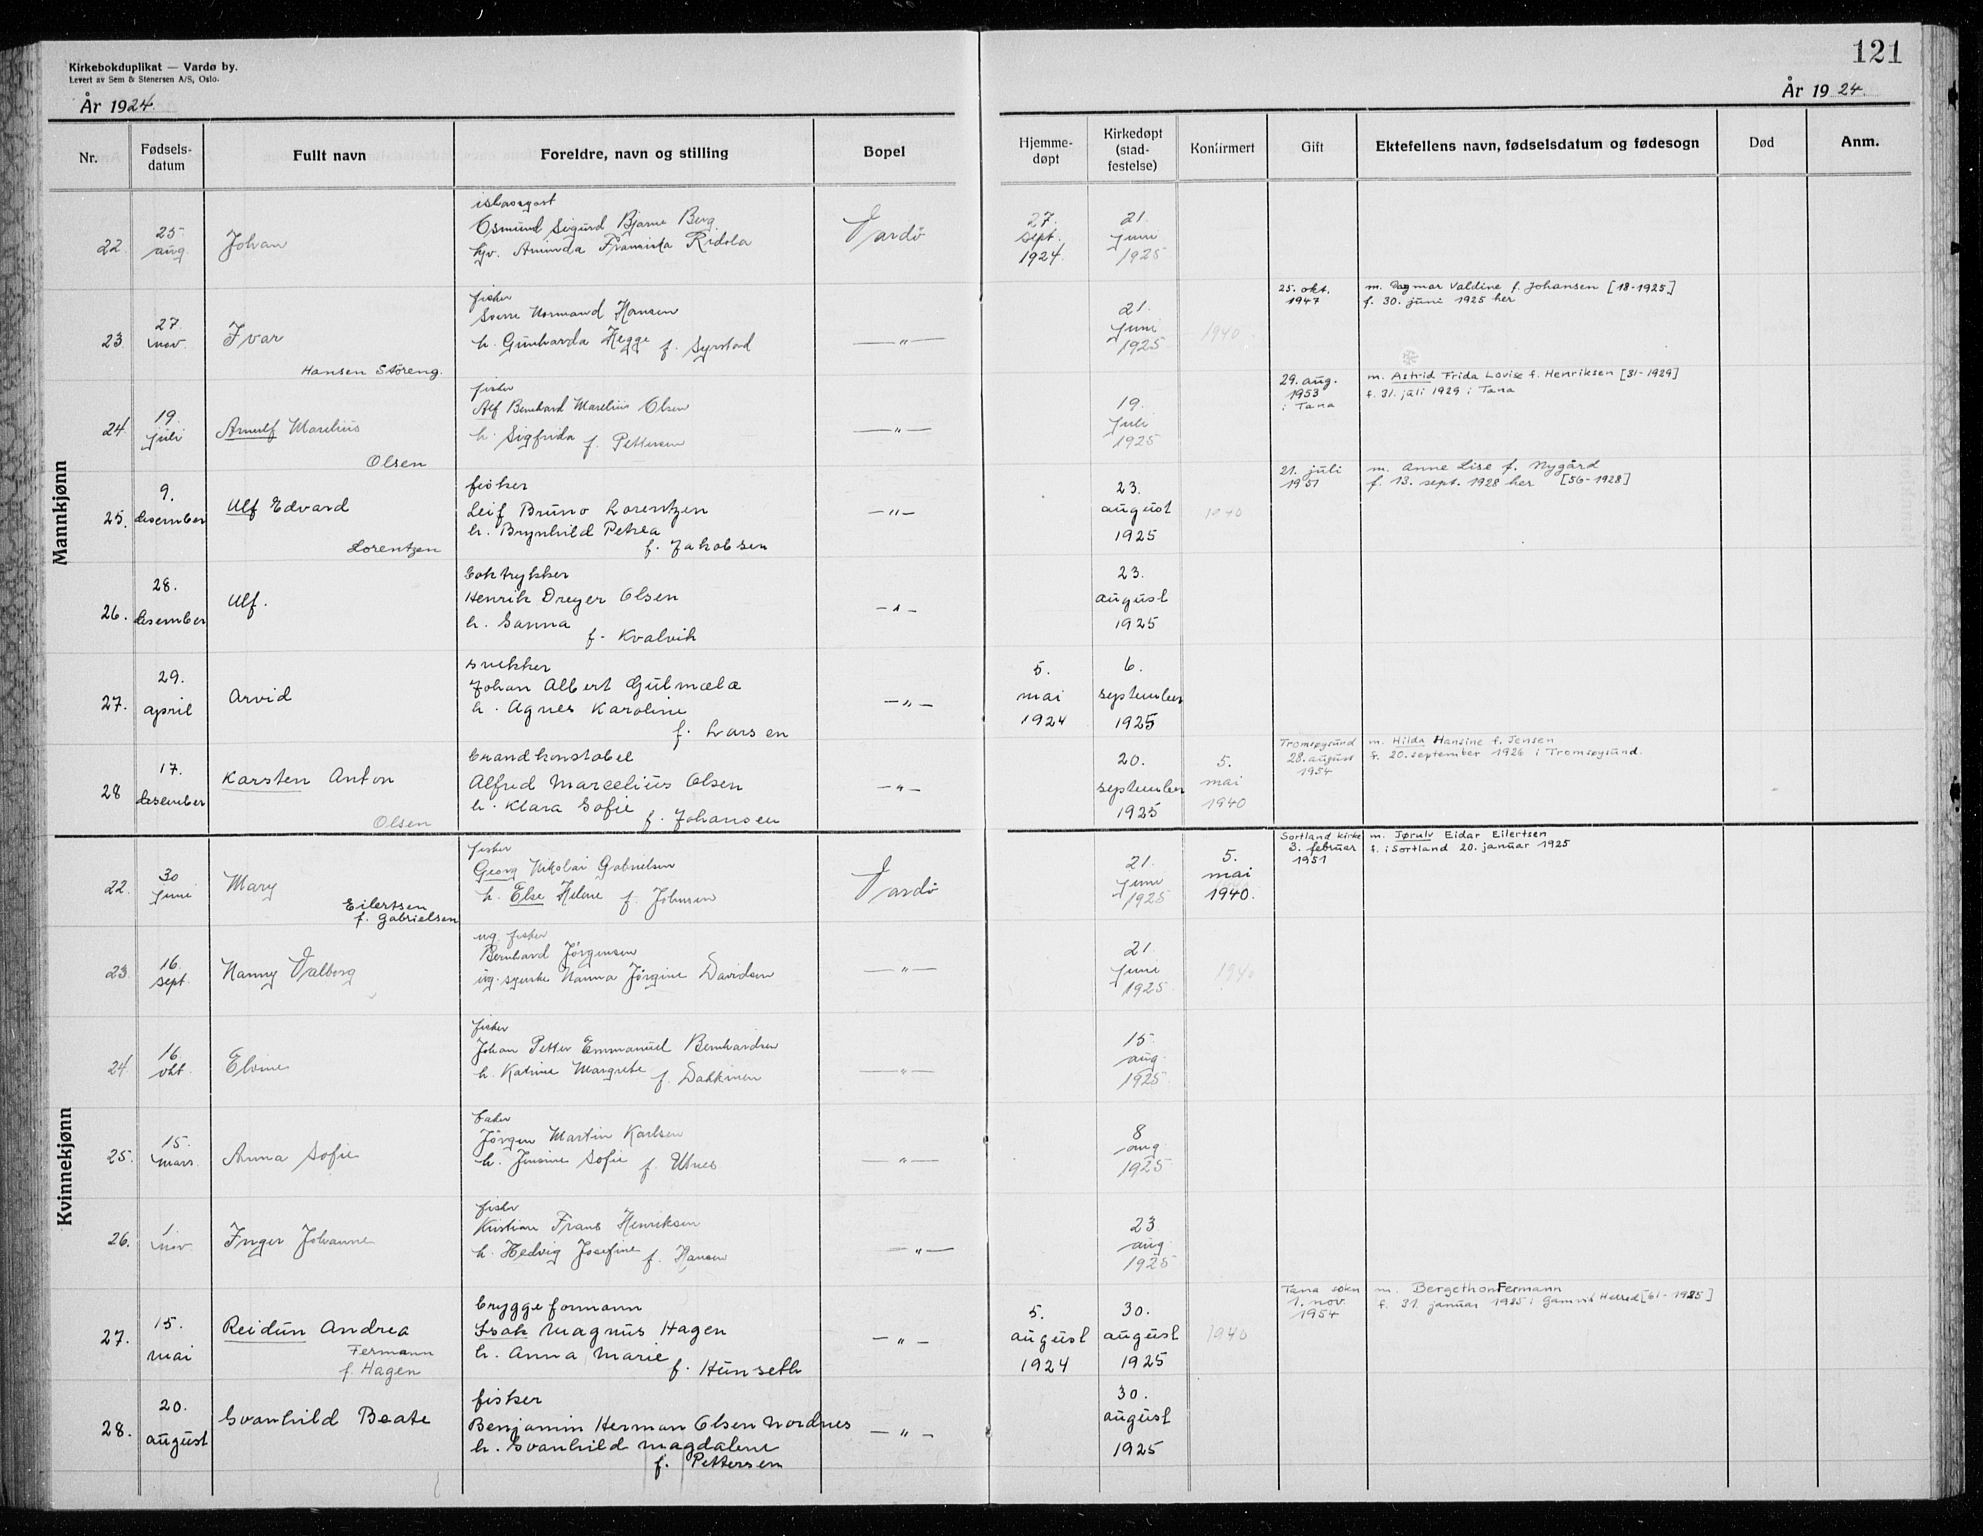 121
Kirkebokduplikat — Vardø by.
Levert av Sem & Stenersen A/S, Oslo.
År 1924.
År 1924.
Nr. Fødselsdatum Fullt navn Foreldre, navn og stilling Bopel Hjemmedøpt Kirkedøpt (stadfestelse) Konfirmert Gift Ektefellens navn, fødselsdatum og fødesogn Død Anm.
Mannkjønn
22. 25 aug. Johan
Osmund Sigurd Bjarne Berg
Vardø
27. sept. 1924.
21. juni 1925
23. 27. nov. Ivar
Hansen Störeng.
fisker
Sverre Normand Hansen
h. Gunharda Hegge f. Syrstad
—„—
21. juni 1925
1940
25. okt. 1947
m. Dagmar Valdine f. Johansen [18-1925]
f. 30. juni 1925 her
24. 19. juli Arnulf Marelius
Olsen
fisker
Alf Bernhard Marelius Olsen
h. Sigfrida f. Pettersen
—„—
19. juli 1925
29. aug. 1953 i Tana
m. Astrid Frida Lovise f. Henriksen [31-1929]
f. 31. juli 1929 i Tana
25. 9. desember Ulf Edvard
Lorentzen
fisker
Leif Bruno Lorentzen
h. Brynhild Petrea
f. Jakobsen
—„—
23. august 1925
1940
21. juli 1951
m. Anne Lise f. Nygård
f. 13. sept. 1928 her [56-1928]
26. 28. desember Ulf.
boktrykker
Henrik Dreyer Olsen
h. Sanna
f. Kvalvik
—„—
23. august 1925
27. 29. april Arvid
snekker
Johan Albert Gulmælæ
h. Agnes Karoline
f. Larsen
—„—
5. mai 1924
6. september 1925
28 17. desember Karsten Anton
Olsen
brandkonstabel
Alfred Marcelius Olsen
h. Klara Sofie
f. Johansen
—„—
20. september 1925
5. mai 1940
Tromsøysund 28. august 1954
m. Hilda Hansine f. Jensen
f. 20. september 1926 i Tromsøysund.
Kvinnekjønn
22. 30 juni Mary
Eilertsen
f. Gabrielsen
fisker
Georg Nikolai Gabrielsen
h. Else Helene f. Johnsen
Vardø
21. juni 1925
5. mai 1940.
Sortland kirke 3. februar 1951
m. Jørulv Eidar Eilertsen
f. i Sortland 20. januar 1925
23. 16. sept. Nanny Valborg
ug. fisker
Bernhard Jørgensen
ug. Nanna Jørgine Davidsen
—„—
21. juni 1925
1940
24. 16. okt. Elvine
fisker
Johan Petter Emmanuel Bernhardsen
h. Katrine Margrete f. Dakkinen
—„—
15 aug. 1925
25. 15. mars. Anna Sofie
baker
Jörgen Martin Karlsen
h. Jensine Sofie f. Utnes
—„—
8 aug. 1925
26. 1 nov. Inger Johanne
fisker
Kristian Frans Henriksen
h. Hedvig Josefine f. Hansen
—„—
23 aug. 1925
27. 15. mai Reidun Andrea
Fermann
f. Hagen
bryggeformann
Isak Magnus Hagen
h. Anna Marie
f. Hunseth
—„—
5. august 1924
30. august 1925
1940
Tana sokn 1. nov. 1954
m. Bergethon Fermann
f. 31. januar 1925 i Gamvik [61-1925]
28. 20. august Svanhild Beate
fisker
Benjamin Herman Olsen Nordnes
h. Svanhild Magdalene
f. Pettersen
—„—
30. august 1925